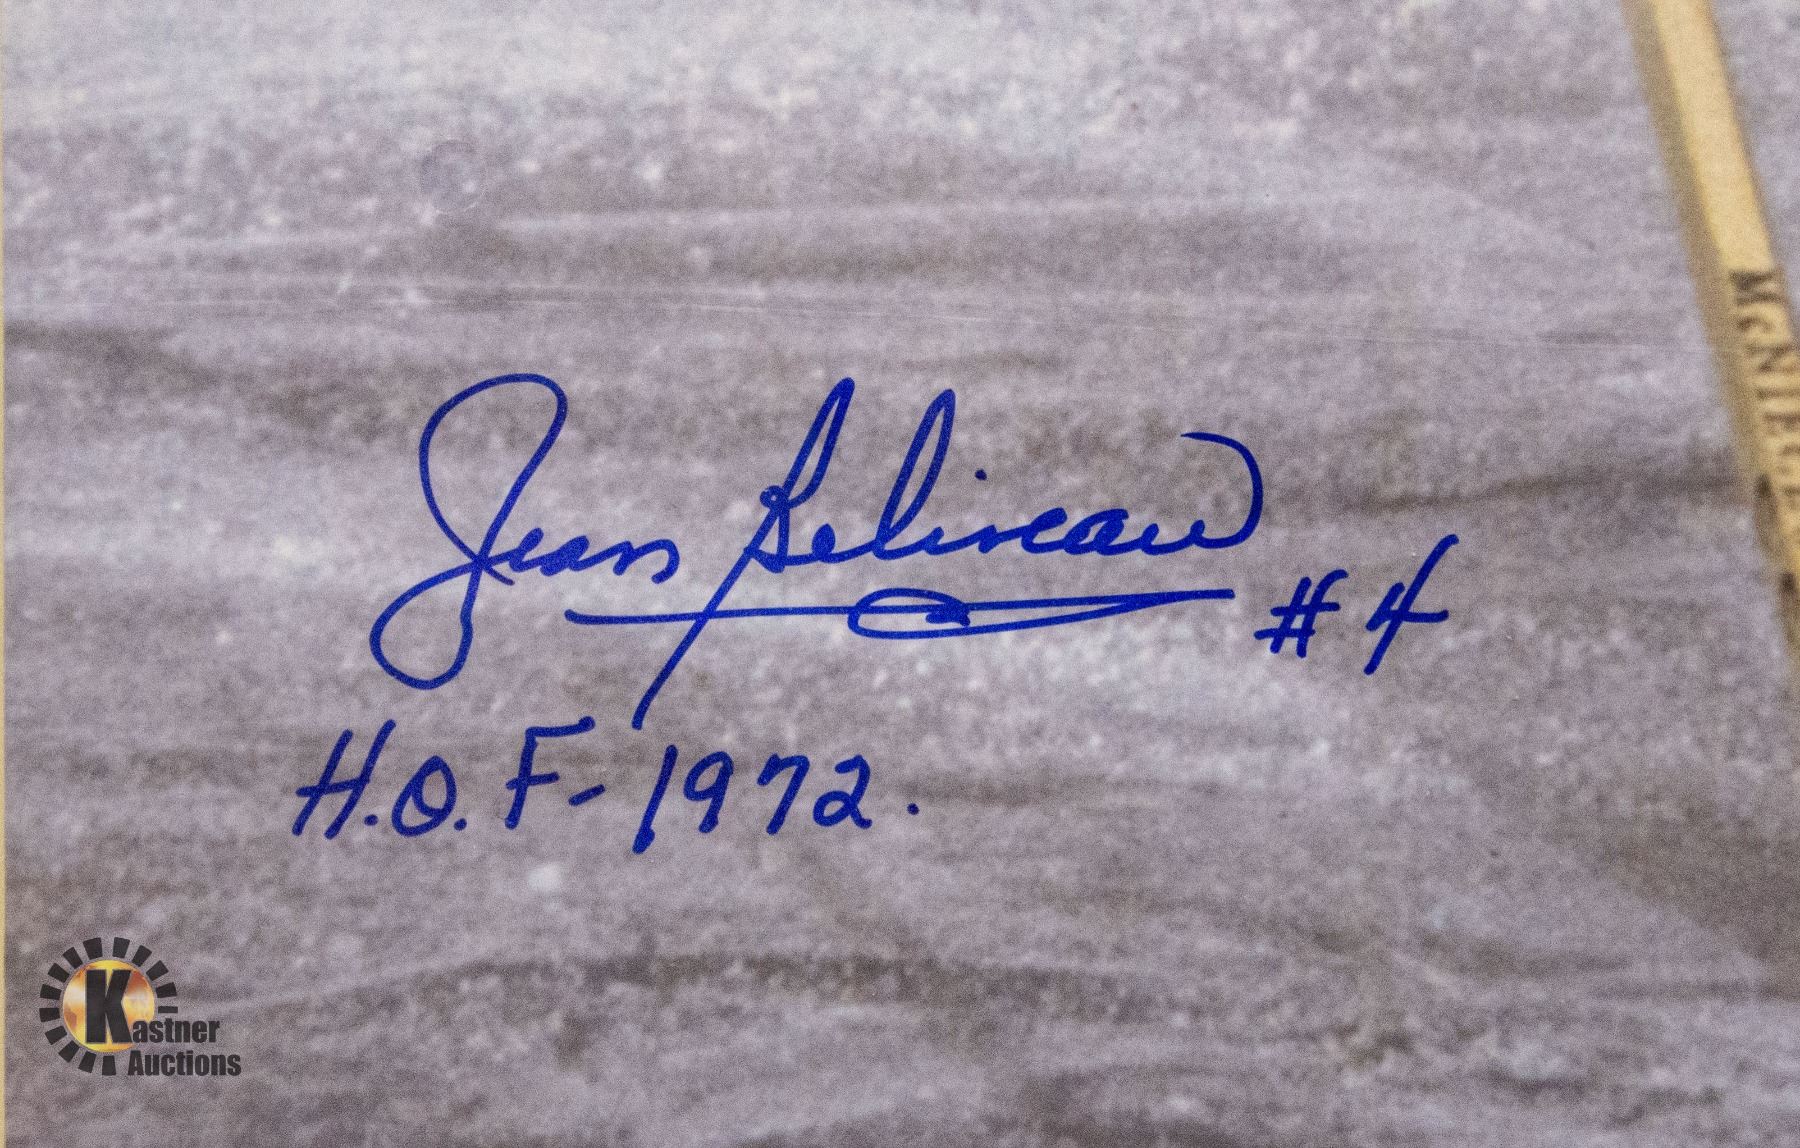 Jean Beliveau #4
H.O.F-1972.
Kastner
Auctions